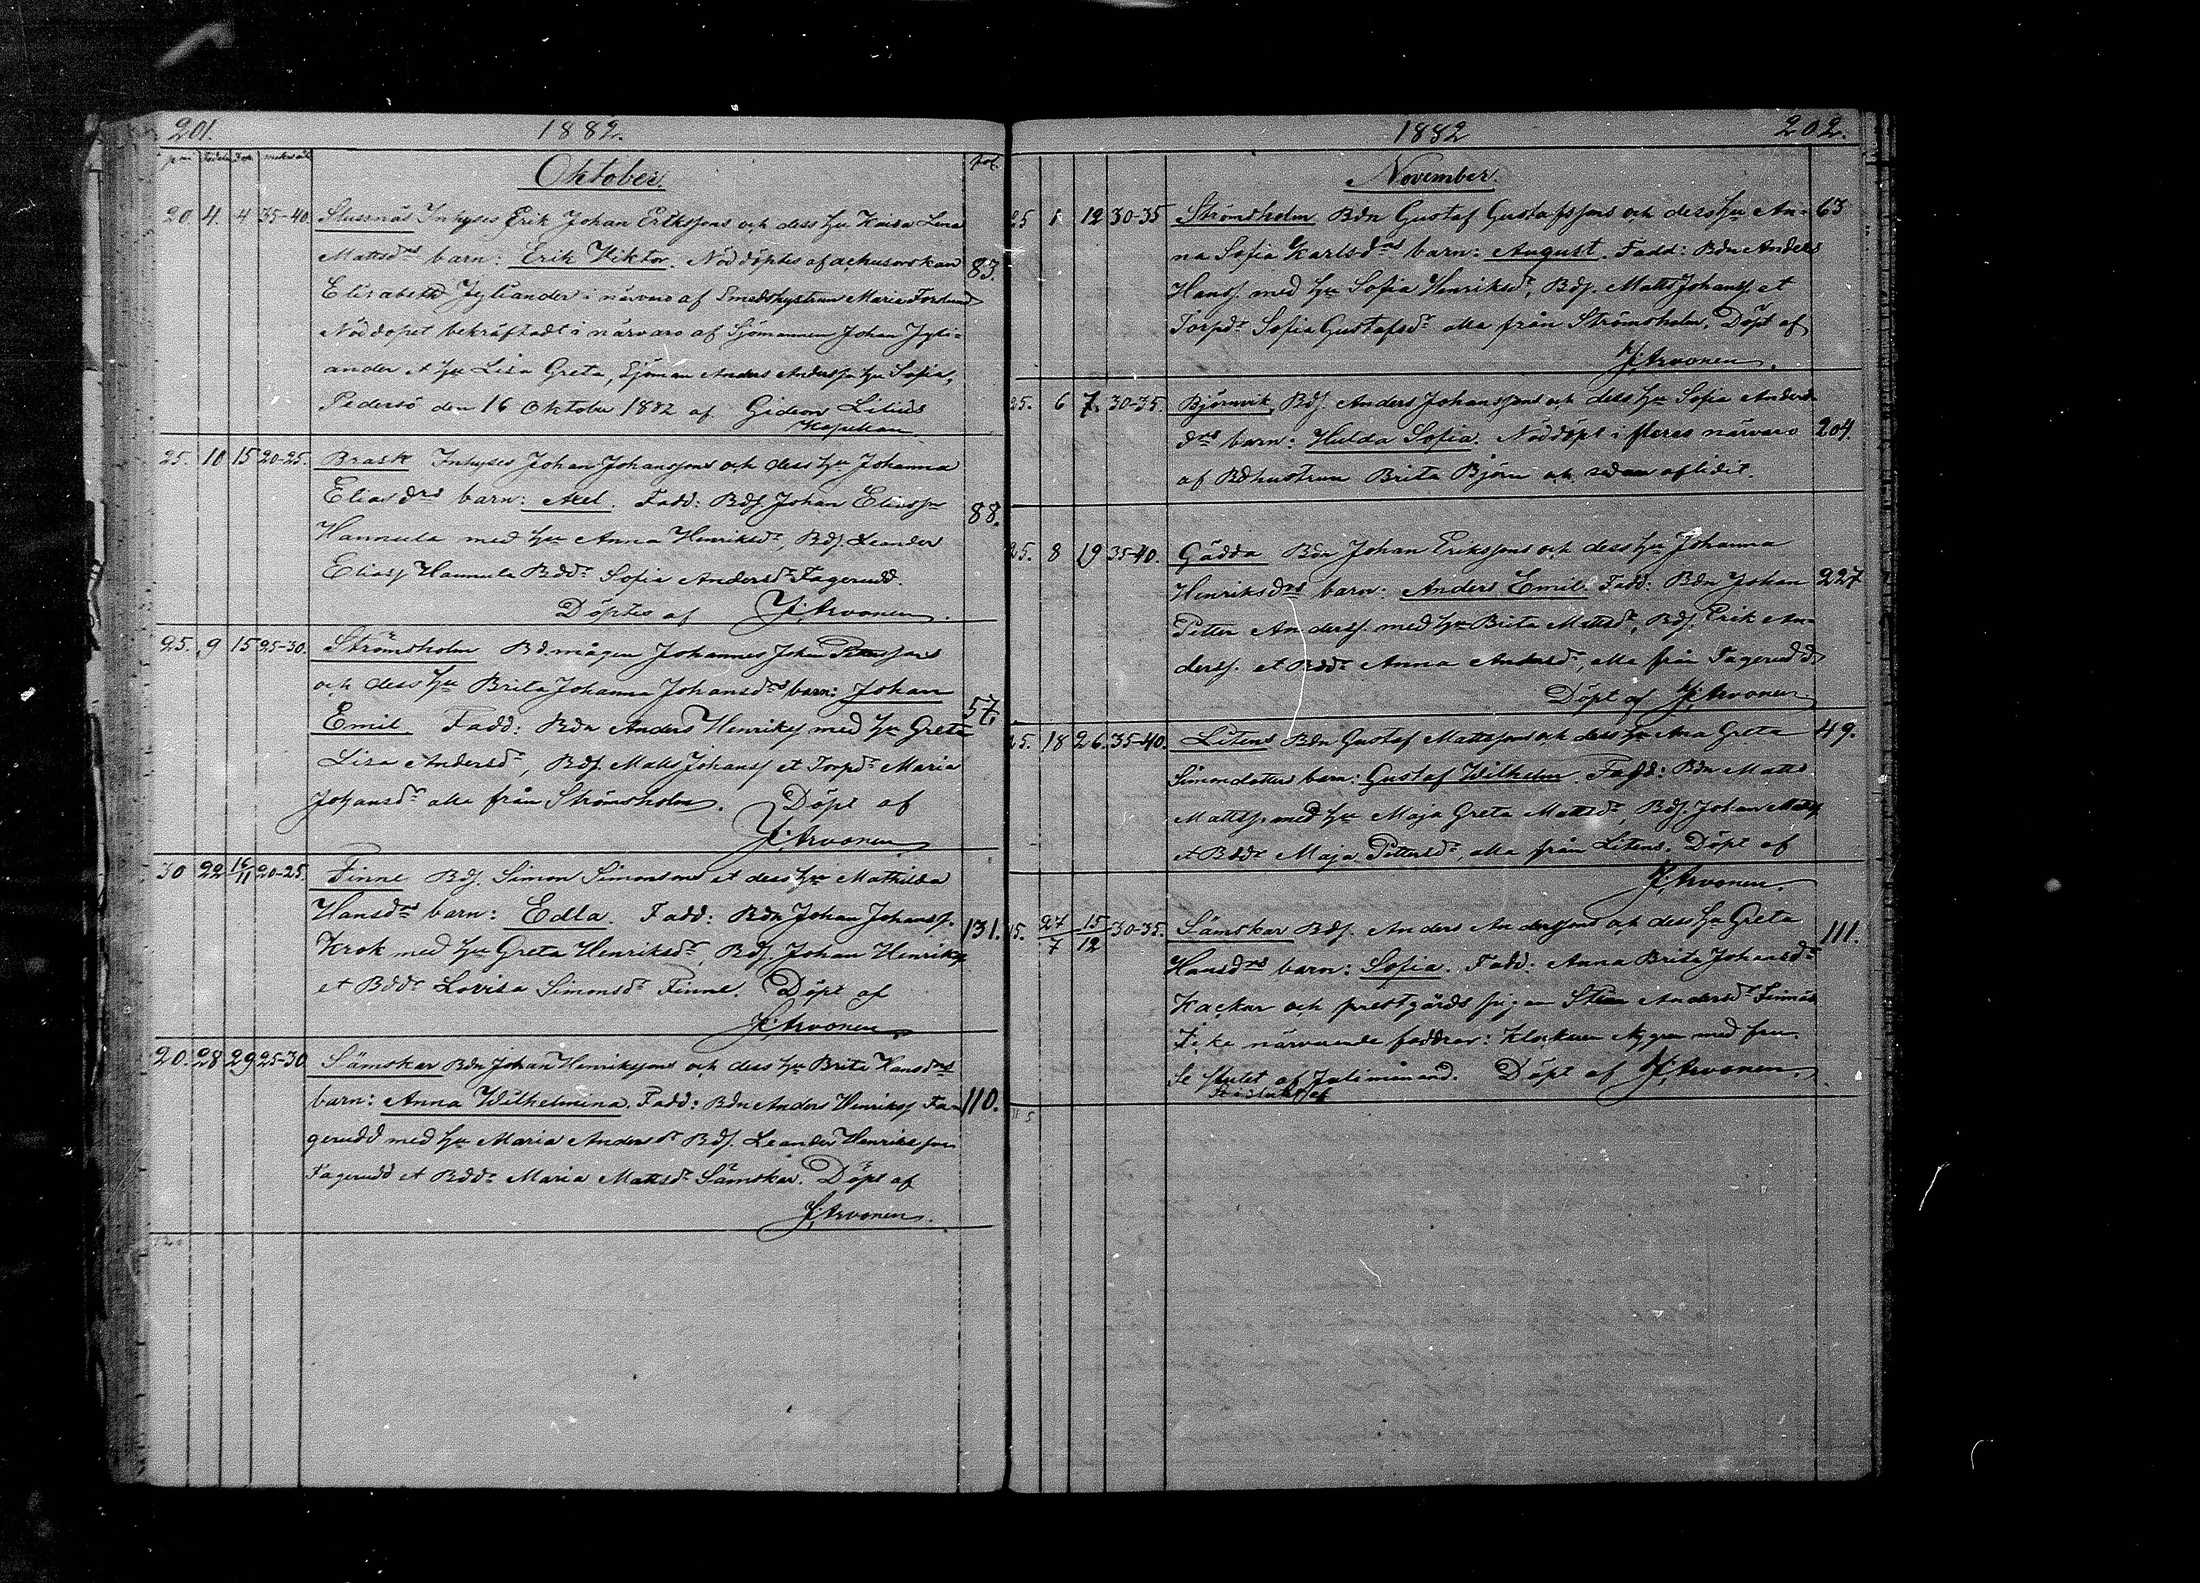 201.
1882.
Oktober.
fol.
20 4. 4 35-40. Slussnäs Inhyses Erik Johan Erikssons och dess hu Kaisa Lena
Mattsdrs barn: Erik Viktor. Nöddöptes af
83.
Elisabeth Jyliander i närvaro af Smedshustrun Maria Forslund
Nöddopet bekräftadt i närvaro af Sjömannen Johan Jyli-
ander et hu Lisa Greta, Sjöman Anders Anderss hu Sofia,
Pedersö den 16 Oktober 1882 af Gideon Lilius
Kapellan.
25. 10 15 20-25. Brask Inhyses Johan Johanssons och dess hu Johanna
Eliasdrs barn: Axel. Fadd: Bds. Johan Eliasson
88.
Hannula med hu Anna Henriksdr, Bds. Leander
Eliass Hannula Bddr Sofia Andersdr Fagerudd.
Döptes af J. Arvonen.
25. 9 15 25-30. Strömsholm Bd.mågen Johannes Johan
och dess hu Brita Johanna Johansdrs barn: Johan
57.
Emil. Fadd: Bdn Anders Henrikss med hu Greta
Lisa Andersdr, Bds. Matts Johanss et Torpdr Maria
Johansdr alla från Strömsholm. Döpt af
J. Arvonen
30 22 16/11 20-25. Finne Bds. Simon Simonsons et dess hu Mathilda
Hansdrs barn: Edla. Fadd: Bdn Johan Johanss.
131.
Krok med hu Greta Henriksdr, Bds. Johan Henrikss
et Bddr Lovisa Simonsdr Finne. Döpt af
J. Arvonen
20. 28 29 25-30 Sämskar Bdn Johan Henrikssons och dess hu Brita Hansdrs
barn: Anna Wilhelmina. Fadd: Bdn Anders Henrikss Fa-
110.
gerudd med hu Maria Andersdr Bds. Leander Henriksson
Fagerudd et Bddr Maria Mattsdr Sämskar. Döpt af
J. Arvonen.
1882
202.
November.
25 1 12 30-35 Strömsholm Bdn Gustaf Gustafssons och dess hu An- 63
na Sofia Karlsdrs barn: August. Fadd: Bdn Anders
Hanss. med hu Sofia Henriksdr, Bds. Matts Johanss. et
Torpdr Sofia Gustafsdr alla från Strömsholm. Döpt af
J. Arvonen.
25. 6 7. 30-35. Björnvik, Bds. Anders Johanssons och dess hu Sofia Anders-
drs barn: Hulda Sofia. Nöddöpt i fleras närvaro 204.
af Bdhustrun Brita Björn och sedan aflidit.
25. 8 19 35-40. Gädda Bdn Johan Erikssons och dess hu Johanna
Henriksdrs barn: Anders Emil. Fadd: Bdn Johan 227
Petter Anderss. med hu Brita Mattsdr, Bds. Erik An-
derss. et Bddr Anna Andersdr, alla från Fagerudd.
Döpt af J. Arvonen.
25. 18 26. 35-40. Litens Bdn Gustaf Mattssons och dess hu Ana Greta 49.
Simonsdotters barn: Gustaf Wilhelm. Fadd: Bdn Matts
Mattss. med hu Maja Greta Mattsdr, Bds. Johan Mattss
et Bddr Maja Pettersdr, alla från Litens. Döpt af
J. Arvonen.
15. 27/7 15/12 30-35. Sämskar Bds. Anders Anderssons och dess hu Greta
111.
Hansdrs barn: Sofia. Fadd: Anna Brita Johansdr
Kackur och prestgårds pigan Andersdr Finnäs
Icke närvarande faddrar: Klockaren Nygren med fru.
Se slutet af Juli månad. Döpt af J. Arvonen.